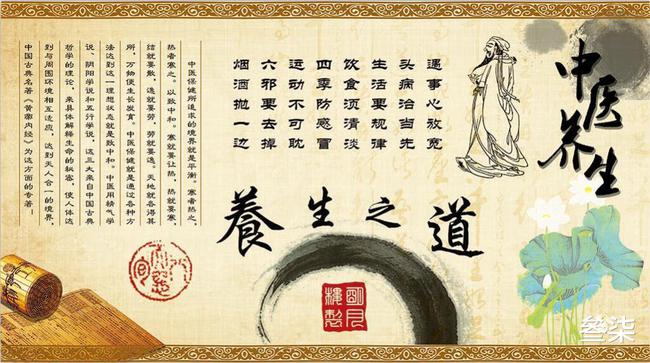 中医养生
遇事心放宽
头病治当先
生活要规律
饮食须清淡
四季防感冒
运动不可耽
六邪要去掉
烟酒抛一边
養生之道
中医保健所追求的境界就是平衡。寒者热之，
热者寒之。以致中和。寒就要让热，热就要寒，
结就要散，逸就要劳，劳就要逸。天地就各得其
所，万物便生长发育。中医保健就是通过各种方
法达到这一理想状态就是致中和。中医用精气学
说、阴阳学说和五行学说，这三大来自中国古典
哲学的理论，来具体解释生命的秘密，使人体达
到与周围环境相互适应，达到天人合一的境界，
中国古典名著《黄帝内经》为这方面的专著！
叁柒